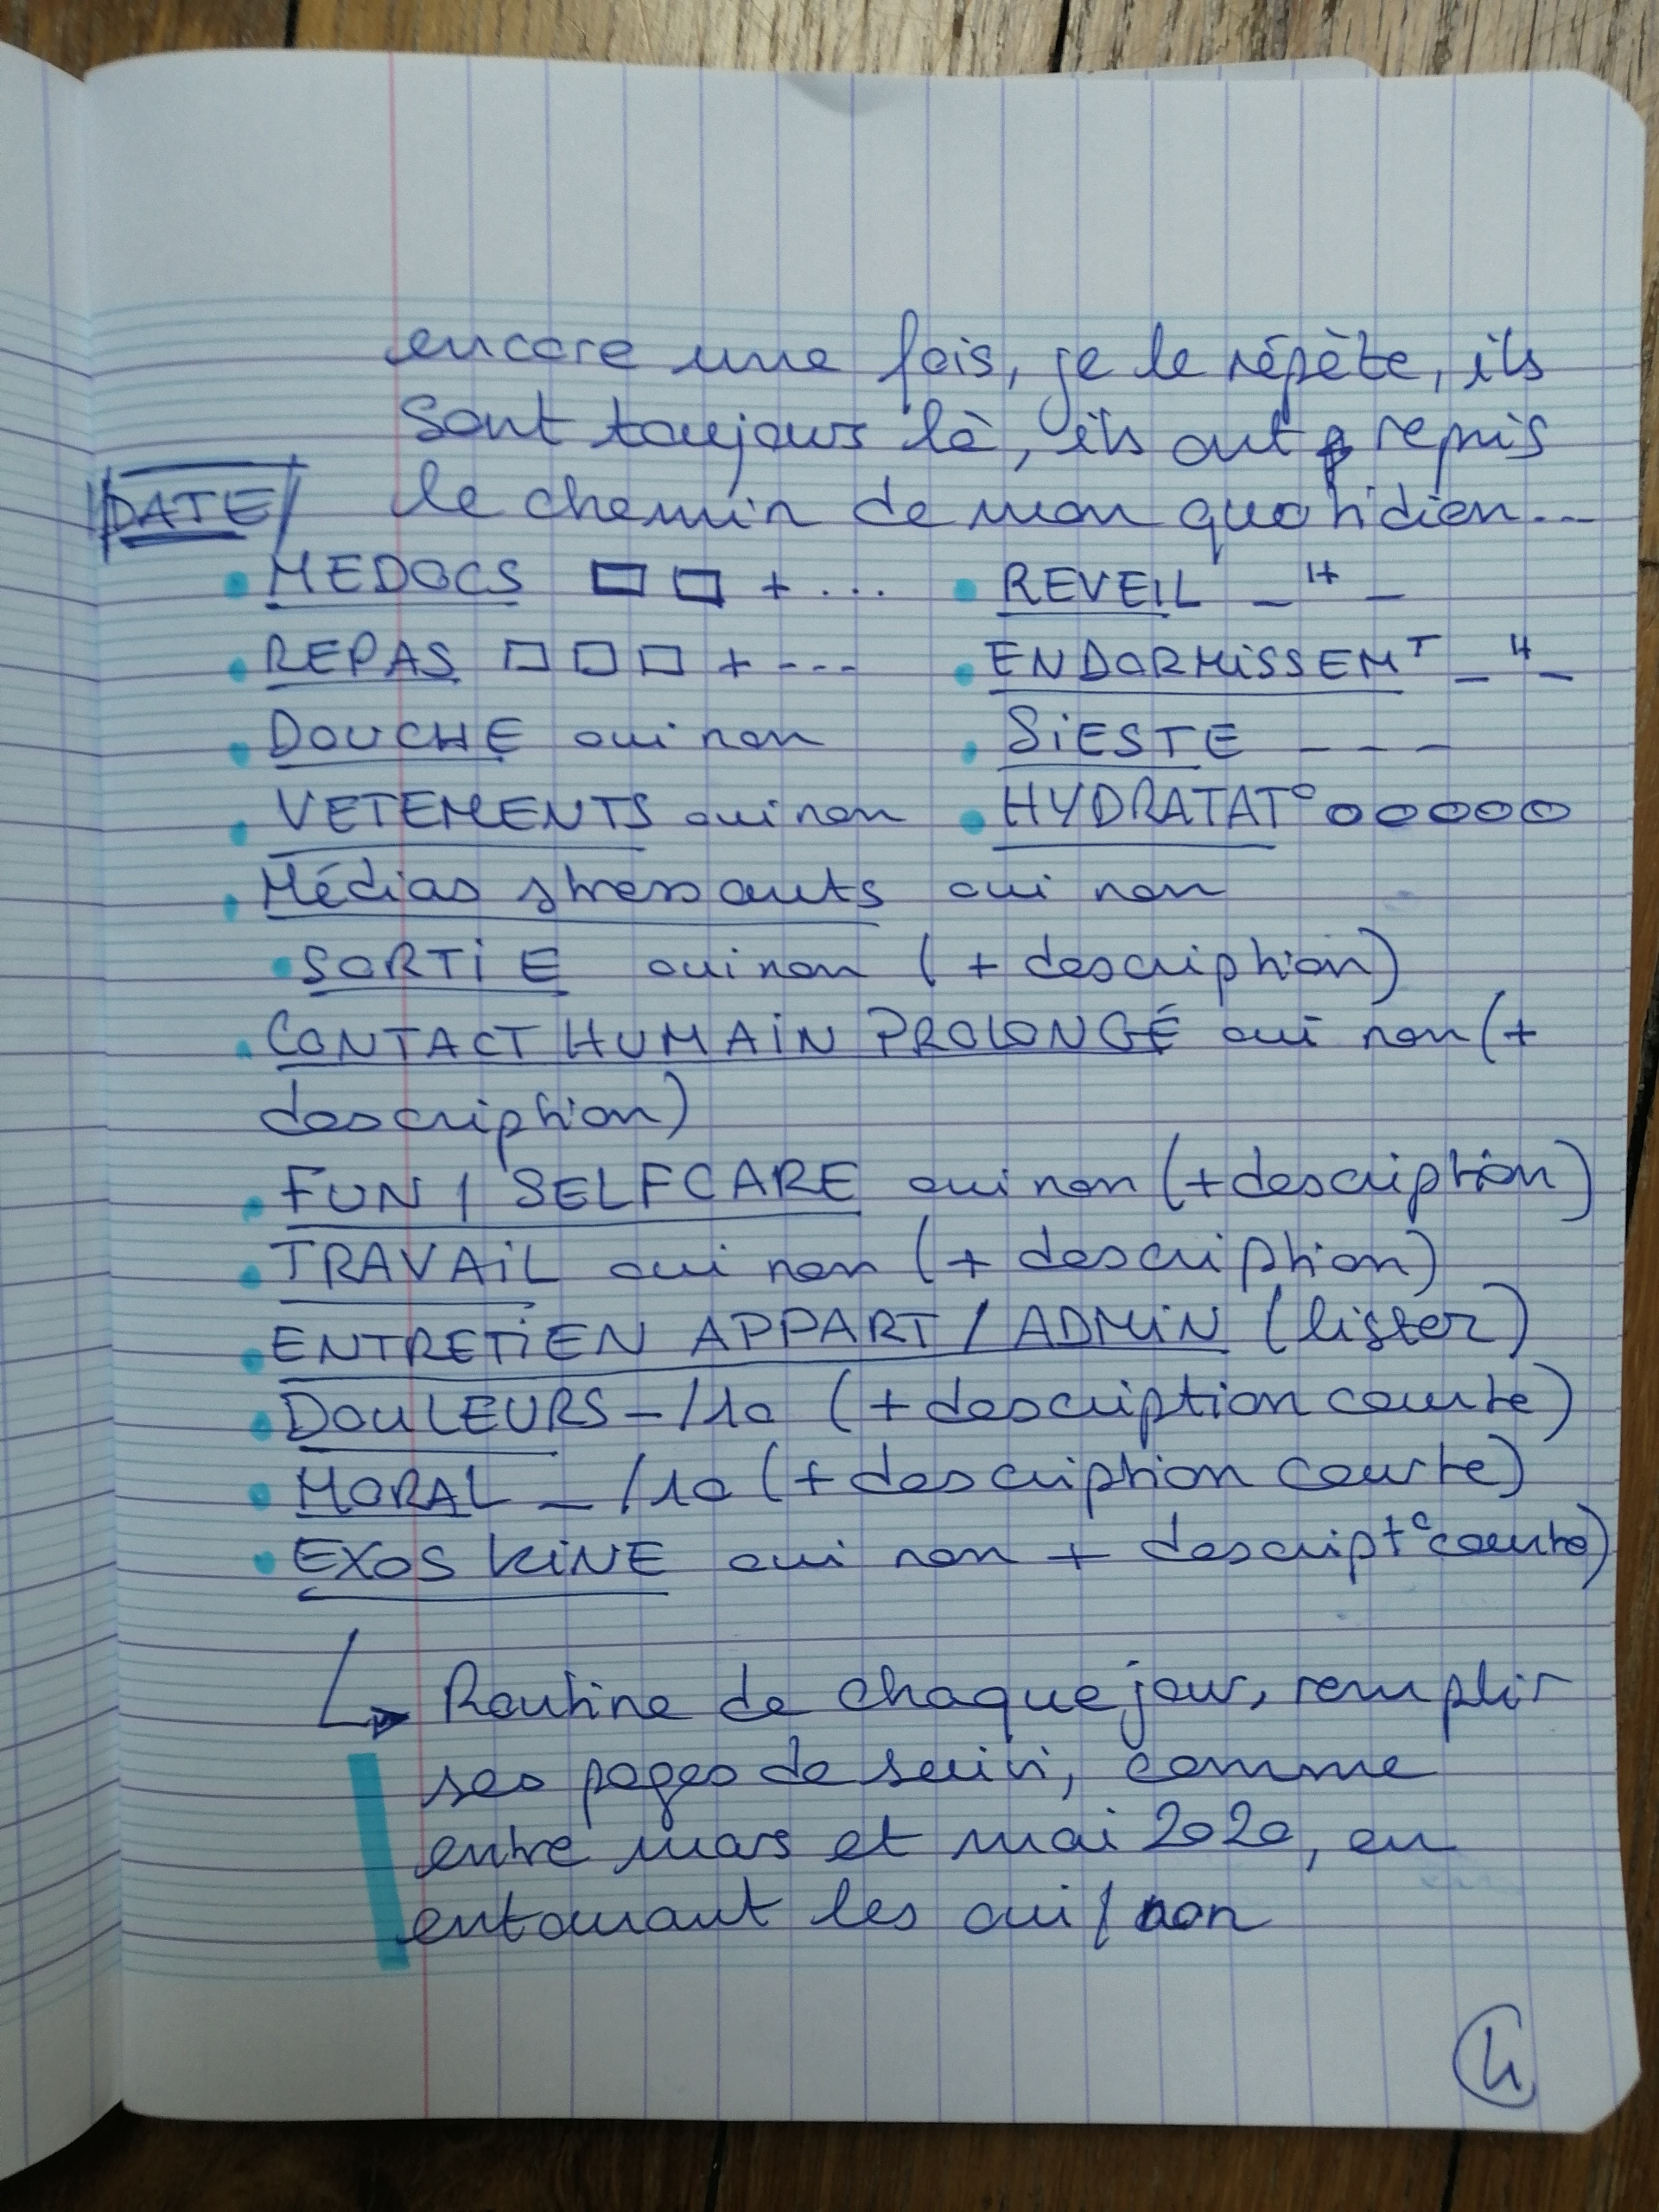 encore une fois, je le répète, ils
sont toujours là, ils ont repris
DATE le chemin de mon quotidien...
• MEDOCS □ □ + ... • REVEIL _ H _
• REPAS □ □ □ + --- • ENDORMiSSEMT _ H _
• DOUCHE oui non • SiESTE _ _ _
• VETEMENTS oui non • HYDRATAT° O O O O O
• Médias stressants oui non
• SORTiE oui non (+ description)
• CONTACT HUMAiN PROLONGÉ oui non (+
description)
• FUN / SELFCARE oui non (+ description)
• TRAVAiL oui non (+ description)
• ENTRETiEN APPART / ADMiN (lister)
• DOULEURS _ /10 (+ description courte)
• MORAL _ /10 (+ description courte)
• EXOS KiNE oui non + descript° courte)
↳ Routine de chaque jour, remplir
ses pages de suivi, comme
entre mars et mai 2020, en
entourant les oui / non
4